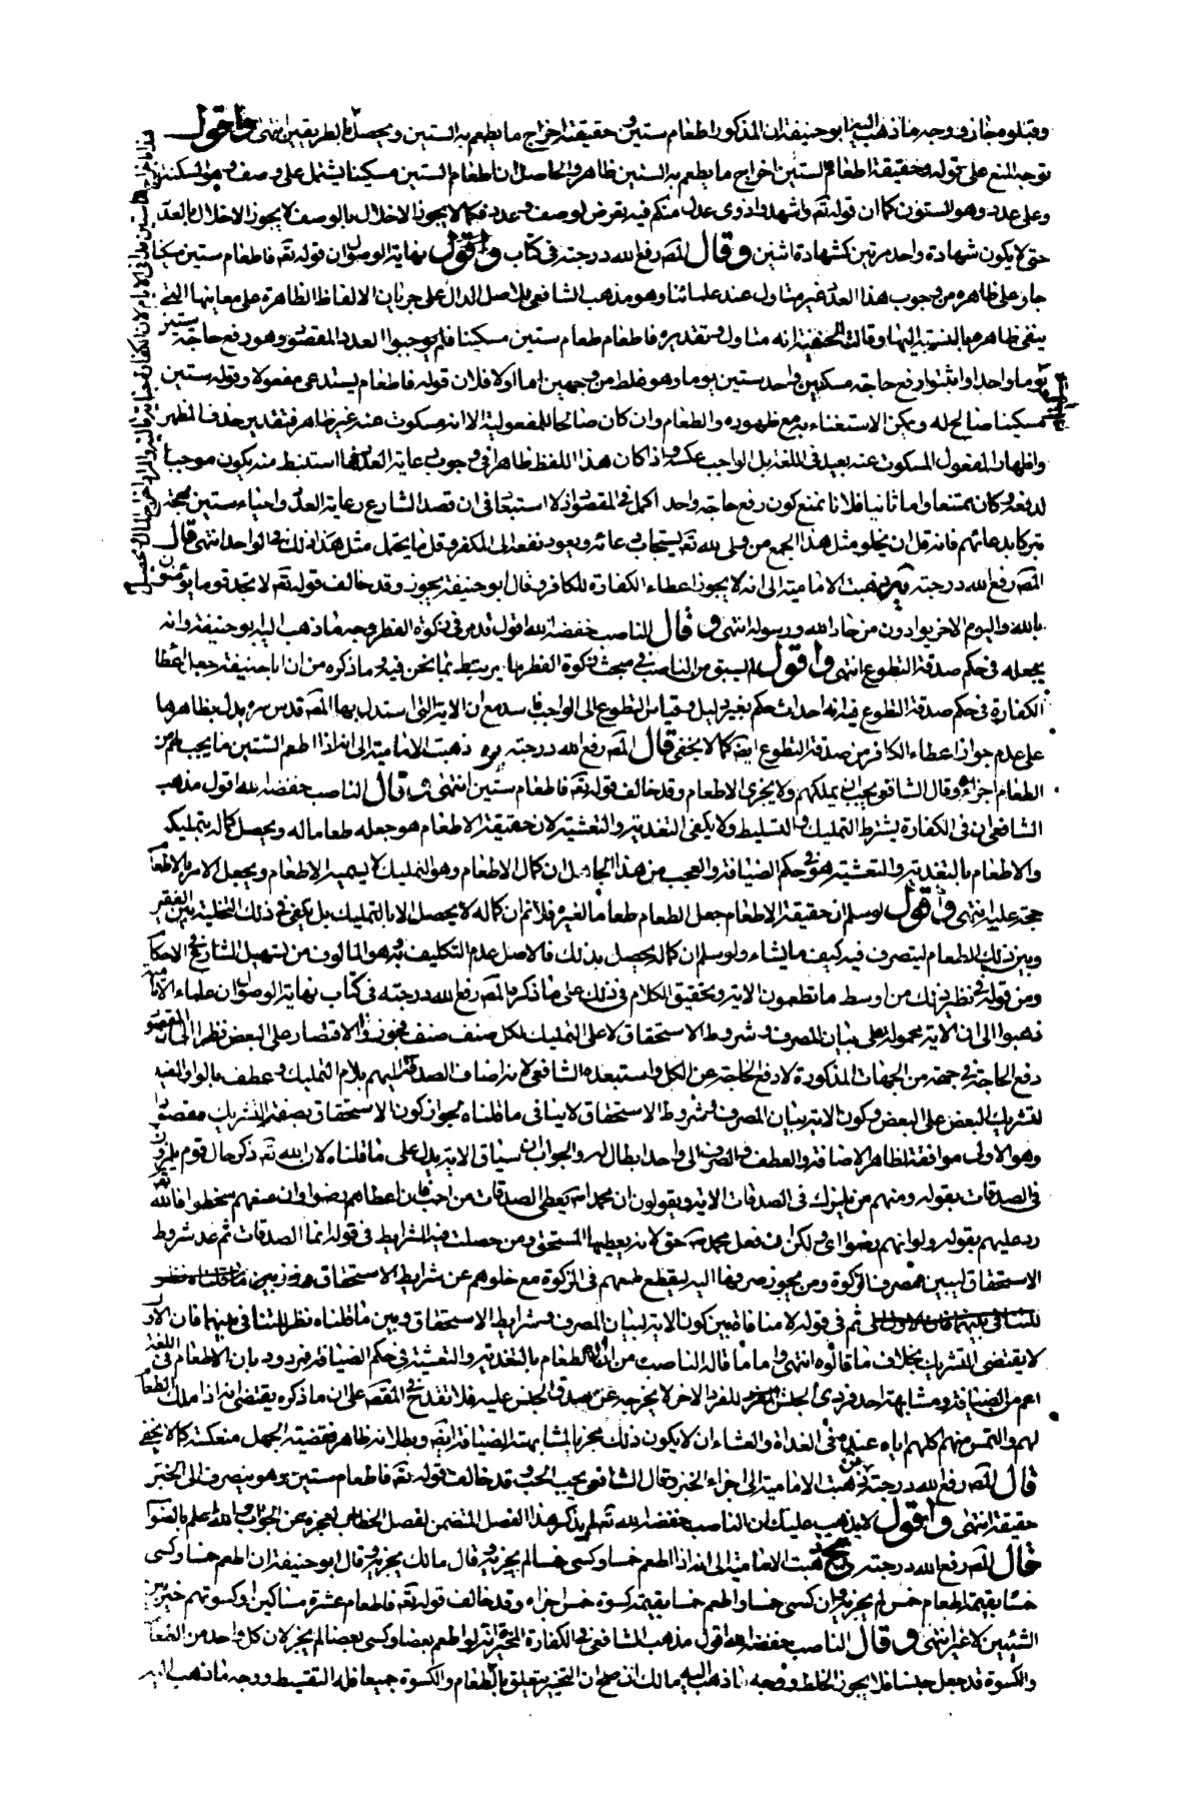 وقبلو مجاز في وجه ما ذهب اليه ابو حنيفة ان المذكور اطعام ستين وحقيقته اخراج ما يطعم به الستين ويحصل بالطريقين انتهى واقول
توجه المنع على قوله وحقيقة اطعام الستين اخراج ما يطعم به الستين ظاهر والحاصل ان اطعام الستين مسكينا يشتمل على وصف وهو المسكنة
وعلى عدد وهو الستون كما ان قوله تعه واشهدوا ذوى عدل منكم فيه تعرض لوصف وعدد فكما لا يجوز الاخلال بالوصف لا يجوز الاخلال بالعدد
حتى لا يكون شهادة واحد مرتين كشهادة اثنين وقال المصه رفع الله درجته في كتاب نهاية الوصول ان قوله تعه فاطعام ستين مسكينا
جار على ظاهره من وجوب هذا العدد غير متاول عند علمائنا وهو مذهب الشافعي للاصل الدال على جريان الالفاظ الظاهرة على معانيها التي
ينفي ظاهرها بالنسبة اليها وقالت الحنفية انه متاول وتقديره فاطعام طعام ستين مسكينا فلم يوجبوا العدد المقصود وهو دفع حاجة ستين
يوما واحدا واثبتوا رفع حاجة مسكين واحد ستين يوما وهو غلط من وجهين اما اولا فلان قوله فاطعام يستدعى مفعولا وقوله ستين
مسكينا صالح له ويمكن الاستغناء به مع ظهوره والطعام وان كان صالحا للمفعولية الا انه مسكوت عنه غير ظاهر فتقدير حذف المظهر
واظهار المفعول المسكوت عنه بعيد في اللغة بل الواجب عكسه واذا كان هذا اللفظ ظاهرا في وجوب رعاية العدد فما استنبط منه يكون موجبا
لدفعه وكان ممتنعا واما ثانيا فلانا نمنع كون رفع حاجة واحد اكمل في المقصود اذ لا استبعاد في ان قصد الشارع رعاية العدد واحياء ستين مهجة
تبركا بدعائهم فانه قل ان يخلو مثل هذا الجمع من ولى لله تعه يستجاب دعائه ويعود نفعه الى المكفر وقل ما يحتمل مثل هذا ذلك في الواحد انتهى قال
المصه رفع الله درجته ذهبت الامامية الى انه لا يجوز اعطاء الكفارة للكافر وقال ابو حنيفة يجوز وقد خالف قوله تعه لا تجد قوما يؤمنون
بالله واليوم الاخر يوادون من حاد الله ورسوله انتهى وقال الناصب خفضه الله اقول قد مر في زكوة الفطر وجه ما ذهب اليه ابو حنيفة وانه
يجعله في حكم صدقة التطوع انتهى واقول لم يسبق من الناصب في مبحث زكوة الفطر ما يرتبط بما نحن فيه وما ذكره من ان ابا حنيفة جعل اعطا
الكفارة في حكم صدقة التطوع فيه انه احداث حكم بغير دليل وقياس التطوع الى الواجب فاسد مع ان الاية التي استدل بها المصه قدس سره يدل بظاهرها
على عدم جواز اعطاء الكافر من صدقة التطوع ايضه كما لا يخفى قال المصه رفع الله درجته ذهبت الامامية الى انه اذا اطعم الستين ما يجب لهم من
الطعام اجزاه وقال الشافعي يجب ان يملكهم ولا يجزى الاطعام وقد خالف قوله تعه فاطعام ستين انتهى وقال الناصب خفضه الله اقول مذهب
الشافعي ان في الكفارة يشترط التمليك والتسليط ولا يكفى التغدية والتعشية لان حقيقة الاطعام هو جعله طعاما له ويحصل كماله بتمليك
والاطعام بالتغدية والتعشية هو في حكم الضيافة والعجب من هذا الجاهل ان كمال الاطعام وهو التمليك لا يسميه الاطعام ويجعل الامر بالاطعام
حجة عليه انتهى واقول لو سلم ان حقيقة الاطعام جعل الطعام طعاما لغيره فلا نم ان كماله لا يحصل الا بالتمليك بل يكفى في ذلك التخلية بين الفقير
وبين ذلك الطعام ليتصرف فيه كيف ما يشاء ولو سلم ان كماله يحصل بذلك فالاصل عدم التكليف به وهو المالوف من تسهيل الشارع في الاحكام
ومن قوله في نظير ذلك من اوسط ما تطعمون الاية وتحقيق الكلام في ذلك على ما ذكره المصه رفع الله درجته في كتاب نهاية الوصول ان علماء الامامية
ذهبوا الى ان الاية محمولة على بيان المصرف وشروط الاستحقاق لا على التمليك لكل صنف صنف فجوزوا الاقتصار على البعض نظرا الى المقصود
دفع الحاجة في جهة من الجهات المذكورة لا دفع الحاجة عن الكل واستبعده الشافعي لانه اضاف الصدقة اليهم بلام التمليك وعطف بالواو المقتضية
للتشريك البعض على البعض وكون الاية لبيان المصرف وشروط الاستحقاق لا ينافى ما قلناه لجواز كون الاستحقاق بصفة التشريك مقصودا
وهو الاولى موافقة لظاهر الاضافة والعطف والصرف الى واحد ابطال له والجواب ان سياق الاية يدل على ما قلناه لان الله تعه ذكر حال قوم يلمزون
في الصدقات بقوله ومنهم من يلمزك في الصدقات الاية ويقولون ان محمدا صه يعطى الصدقات من احب فان اعطاهم رضوا وان منعهم سخطوا فالله
رد عليهم بقوله ولو انهم رضوا اى ولكن ان فعل محمد صه حق لانه يعطيها المستحق ومن حصلت فيه الشرايط في قوله انما الصدقات ثم عد شروط
الاستحقاق ليبين مصرف الزكوة ومن يجوز صرفها اليه ليقطع طمعهم في الزكوة مع خلوهم عن شرايط الاستحقاق
ثم في قوله لا منافاة بين كون الاية لبيان المصرف وشرايط الاستحقاق وبين ما قلناه نظر للتنافى بينهما فان الاول
لا يقتضى التشريك بخلاف ما قالوه انتهى واما ما قاله الناصب من ان الاطعام بالتغدية والتعشية في حكم الضيافة فمردود بان الاطعام في اللغة
اعم من الضيافة ومشابهة احد فردى الجنس للفرد الاخر لا يخرجه عن صدق الجنس عليه فلا تقدح في المقصه على ان ما ذكره يقتضى انه اذا ملك الطعام
لهم والتمس منهم اكلهم اياه عنده في الغداة والعشاء ان لا يكون ذلك مجزيا لمشابهته الضيافة ايضه وبطلانه ظاهر فقضية الجهل منعكسة كما لا يخفى
قال المصه رفع الله درجته ذهبت الامامية الى اجزاء الخبز وقال الشافعي يجب الحب وقد خالف قوله تعه فاطعام ستين وهو ينصرف الى الخبز
حقيقة انتهى واقول لا يذهب عليك ان الناصب خفضه الله تعه لم يذكر هذا الفصل المتضمن لفصل الخطاب لعجزه عن الجواب والله اعلم بالصواب
قال المصه رفع الله درجته ذهبت الامامية الى انه اذا اطعم خمسا وكسى خمسا لم يجزيه وقال مالك يجزيه وقال ابو حنيفة ان اطعم خمسا وكسى
خمسا بقيمة اطعام خمس لم يجزيه وان كسى خمسا واطعم خمسا بقيمة كسوة خمس اجزاه وقد خالف قوله تعه فاطعام عشرة مساكين او كسوتهم خير بين
الشيئين لا غير انتهى وقال الناصب خفضه الله اقول مذهب الشافعي في الكفارة المخيرة انه لو اطعم بعضا وكسى بعضا لم يجز لان كل واحد من الطعام
والكسوة قد جعل جنسا فلا يجوز الخلط ووجه ما ذهب اليه مالك ان صح ان التخيير متعلق بالطعام والكسوة جميعا فله التقسيط ووجه ما ذهب اليه